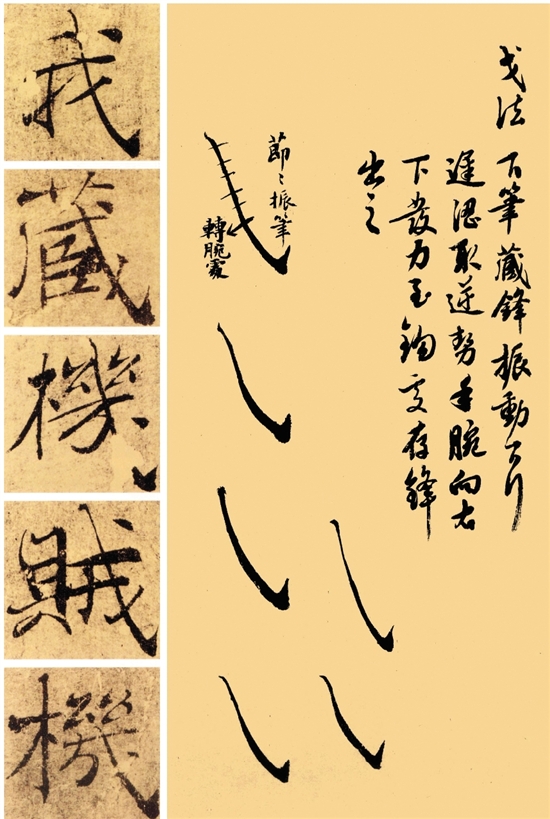 戈法 下筆藏鋒振動而行
遲澀取逆勢手腕向右
下發力至鉤處存鋒
出之
節々振筆
轉腕處
我
藏
機
賊
機